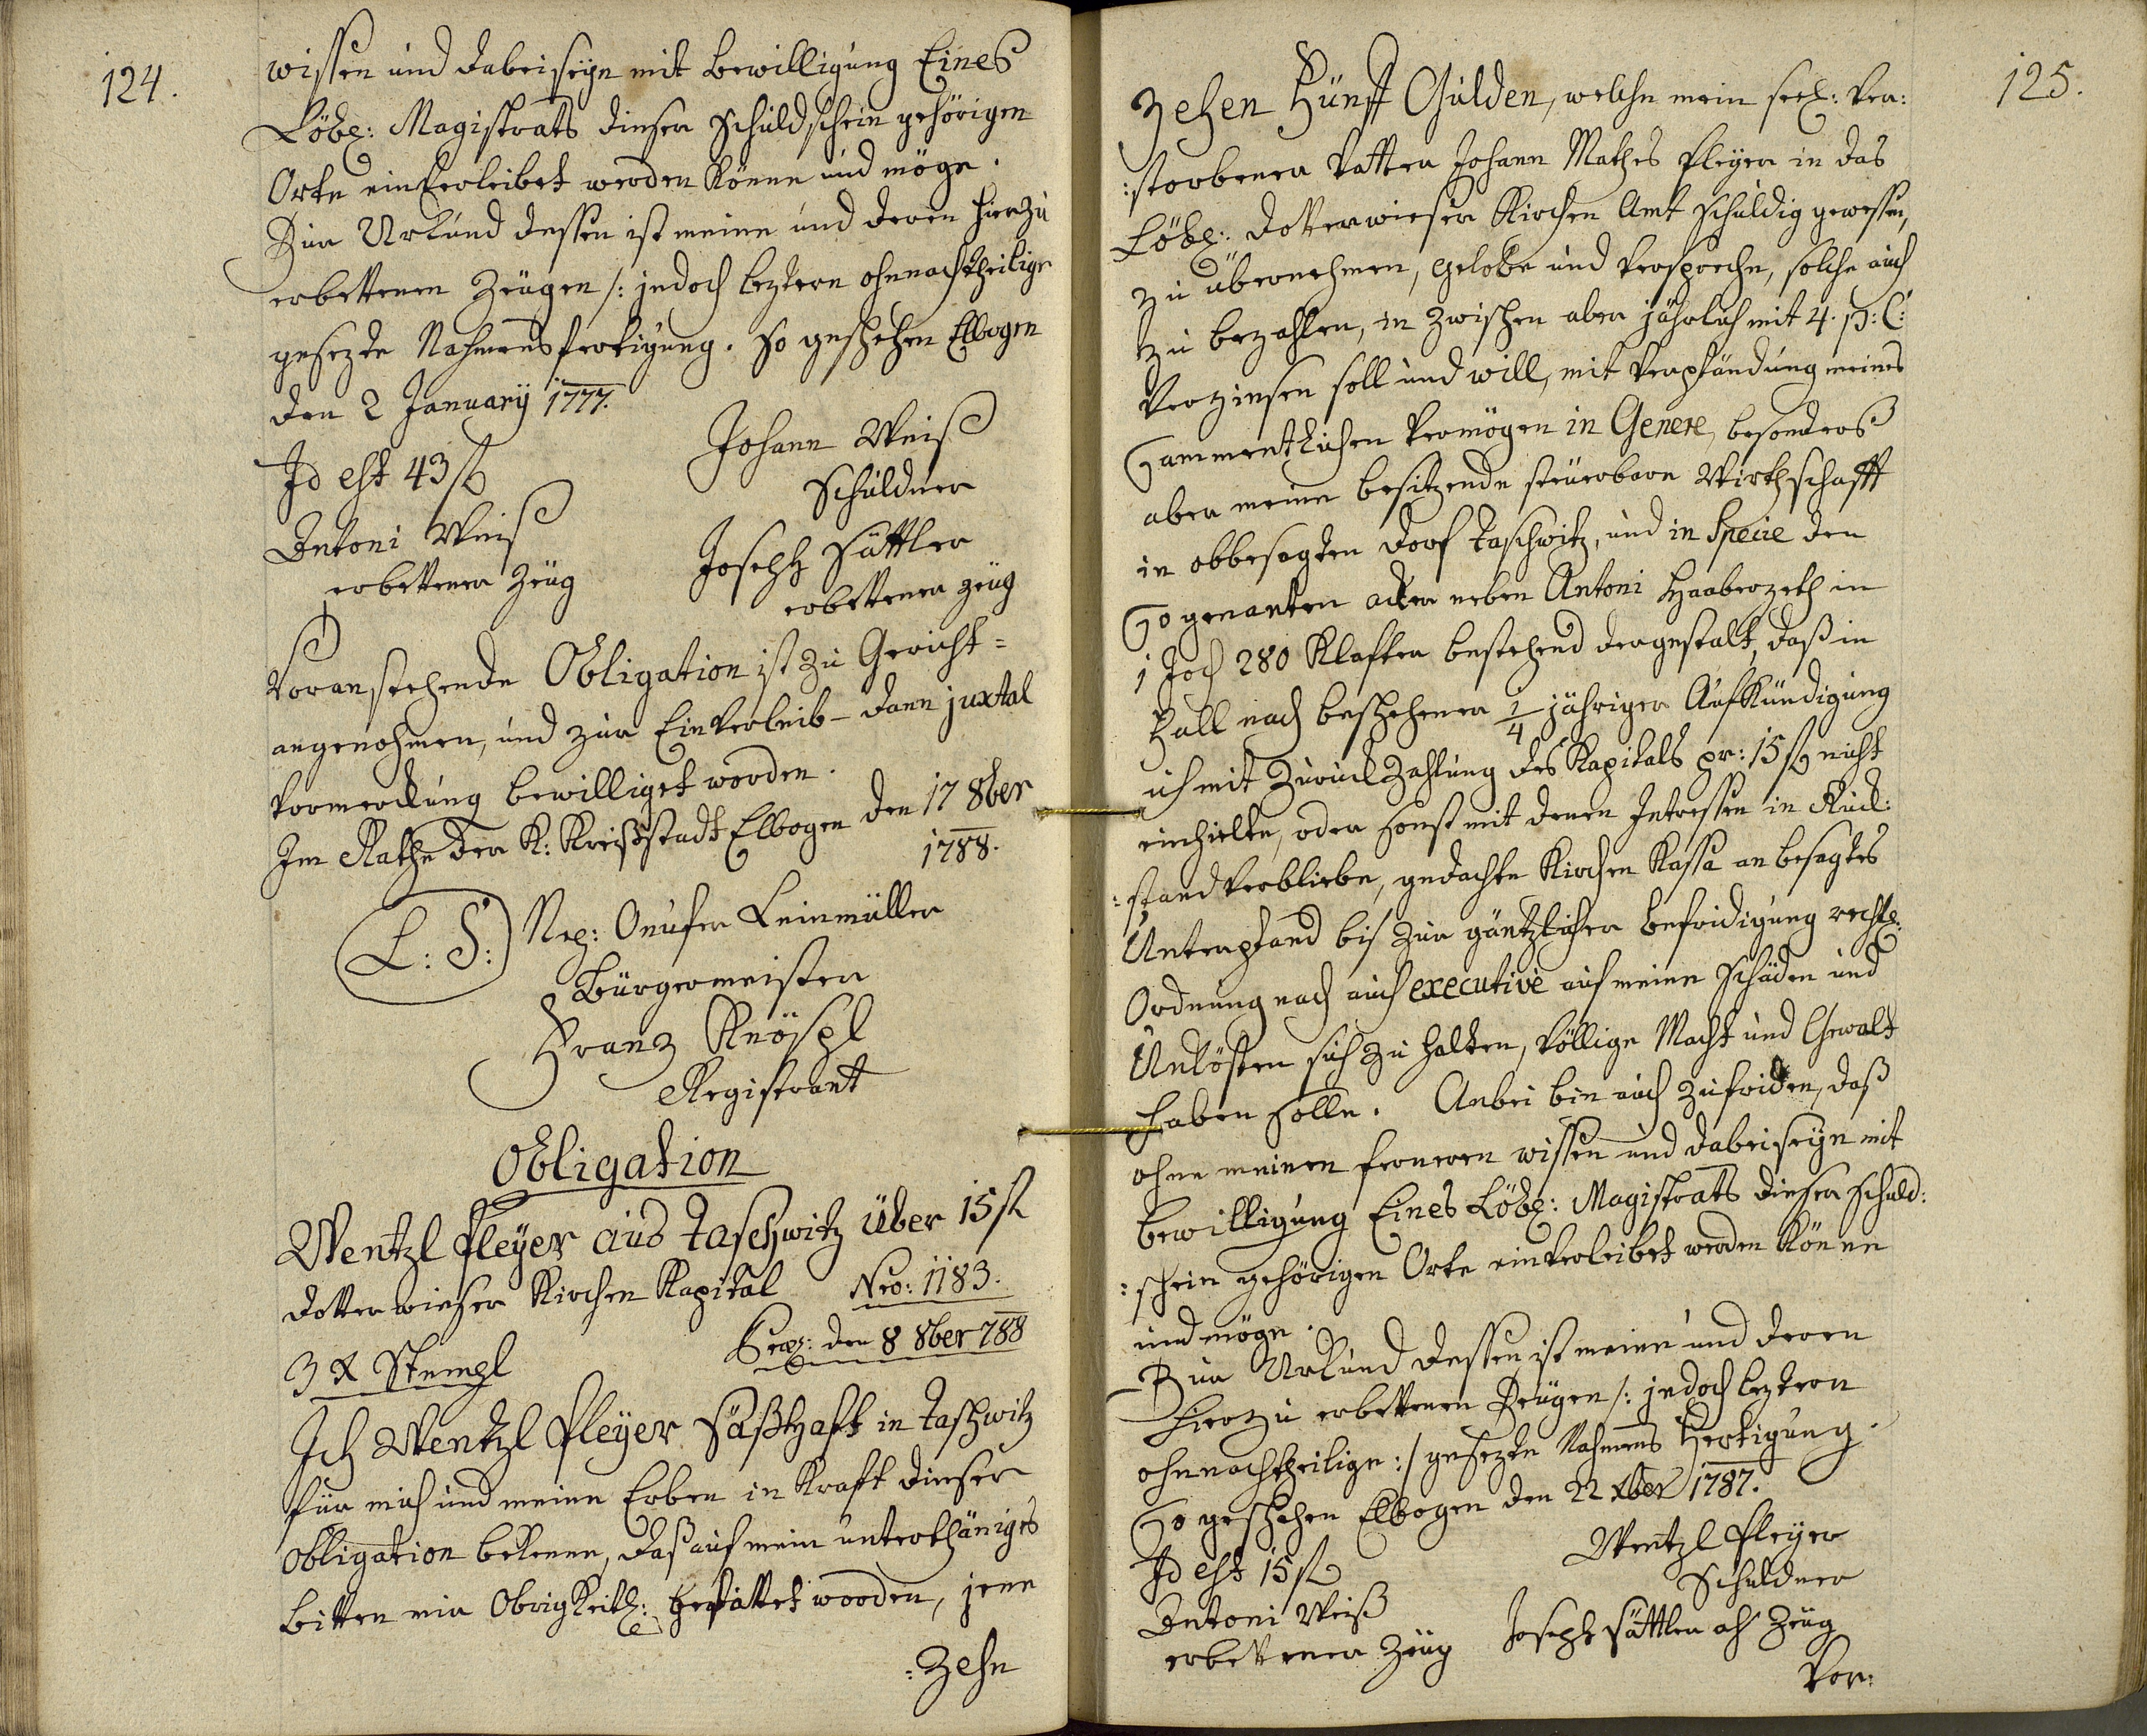 124.
wissen und dabeiseÿn mit bewilligung Eines
Löbl: Magistrats dieser Schuldschein gehörigen
Orts einverleibet werden könne und möge.
Zur Urkund dessen ist meine und deren hierzu
erbettenen Zeugen /: jedoch leztern ohnnachtheilige
gesezte Nahmensfertigung. So geschehen Elbogen
den 2 Januarÿ 1777.
Id est 43 fl
Johann Weiß
Schuldner
Antoni Weiß
erbettener Zeug
Joseph Sattler
erbettener Zeug
Voranstehende Obligation ist zu Gericht=
angenohmen, und zur Einverleib- dann juxtal
Vormerckung bewilliget worden.
Im Rathe der K: Kreißstadt Elbogen den 17 8ber
1788.
L: S:
Nep: Onufer Leinmüller
Bürgermeister
Franz Knöspl
Registrant
Obligation
Wentzl Pleÿer aus Taschwitz über 15 fl
Dotterwieser Kirchen Kapital Nro: 1183.
3 x Stempl
Præs: den 8 8ber 788
Ich Wentzl Pleÿer Säßhaft in Taschwitz
für mich und meine Erben in Kraft dieser
Obligation bekenne, daß auf mein unterthäniges
bitten mir Obrigkeitl: gestattet worden, jene
:zehn
125.
Zehen Fünff Gulden, welche mein seel: ver:
:storbener Vatter Johann Mathes Pleÿer in das
Löbl: Dotterwieser Kirchen Amt schuldig gewesen,
zu übernehmen, gelobe und verspreche, solche auch
zu bezahlen, in zwischen aber jährlich mit 4. p: C:
Verzinsen soll und will, mit Verpfändung meines
Sammentlichen Vermögen in Genere, besonders
aber meine besitzende steuerbare Wirthschafft
in obbesagten Dorf Taschwitz, und in Specie den
Sogenanten acker neben Antoni Haaberzeth in
1 Joch 280 Klafter bestehend dergestalt, daß in
Fall nach beschehener 1/4 jähriger Aufkündigung
ich mit Zuruckzahlung des Kapitals pr: 15 fl nicht
einhielte, oder sonst mit denen Intressen in Ruck:
:stand verbliebe, gedachte Kirchen Kassa an besagtes
Unterpfand bis zur gäntzlicher Befridigung rechtl:
Ordnung nach auch executive auf meine Schäden und
Unkösten sich zu halten, völlige Macht und Gewalt
haben solle. Anbei bin auch zufriden, daß
ohne meinen ferneren wissen und dabeiseÿn mit
bewilligung Eines Löbl: Magistrats dieser Schuld:
:schein gehörigen Orts einverleibet werden könne
und möge.
Zur Urkund dessen ist meine und deren
hierzu erbettenen Zeugen /: jedoch leztern
ohnnachtheilige :/ gesezte Nahmens Fertigung.
So geschehen Elbogen den 22 xber 1787.
Id est 15 fl
Wentzl Pleÿer
Schuldner
Antoni Weiß
erbettener Zeug
Joseph Sattler als Zeug
Vor: